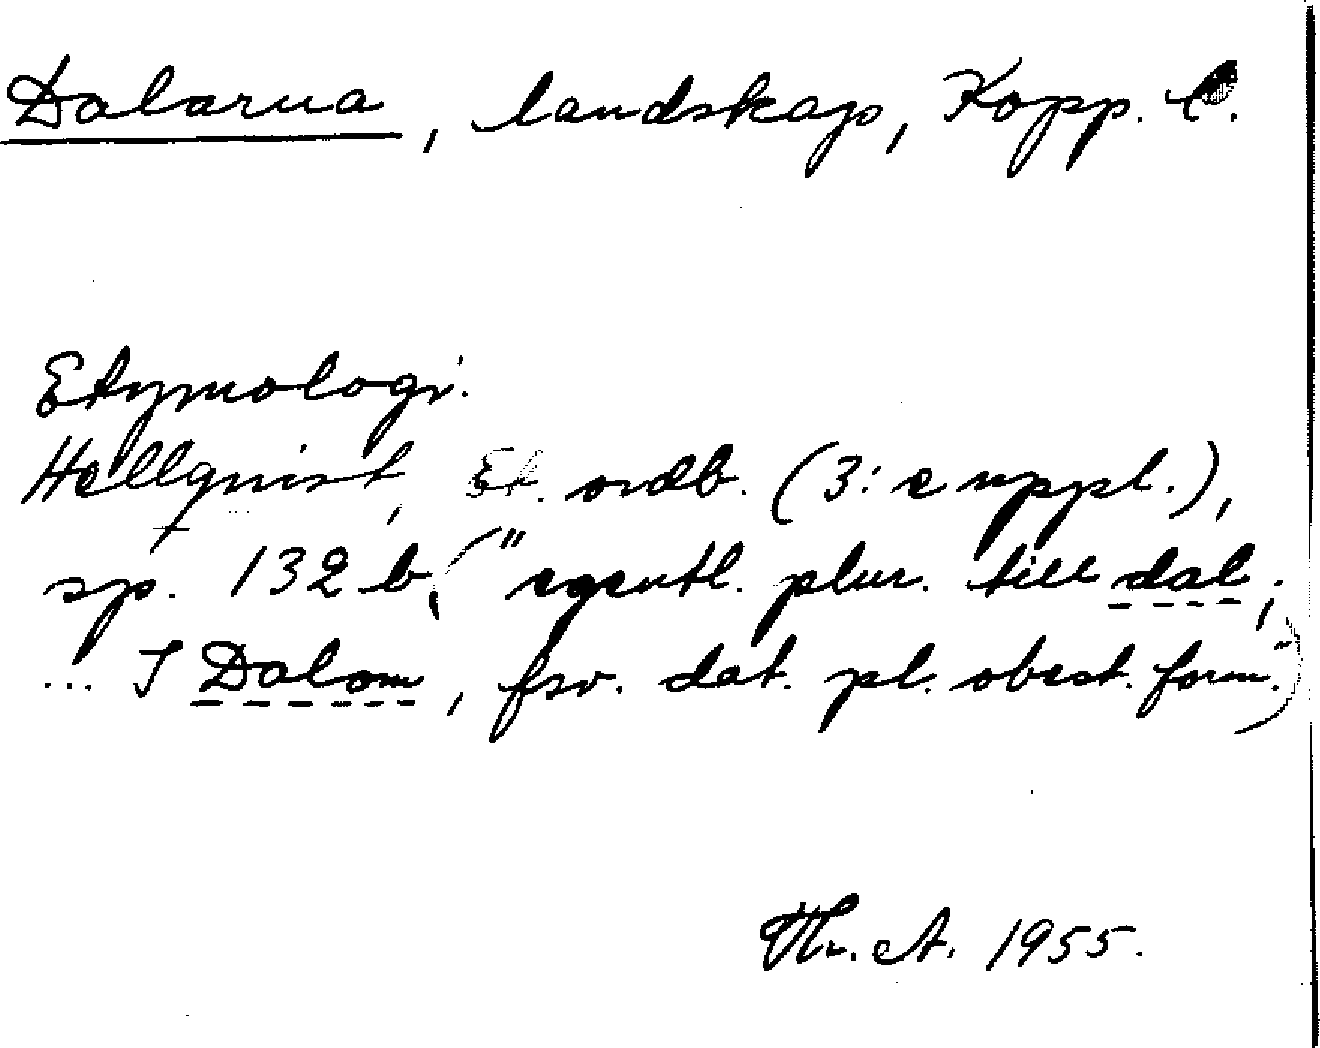 Dalarna, landskap, Kopp. l.
Etymologi.
Hellquist, Et. ordb. (3:e uppl.),
sp. 132 b, ("egentl. plur. till dal;
... I Dalom, fsv. dat. pl. obest. form.")
Th. A. 1955.